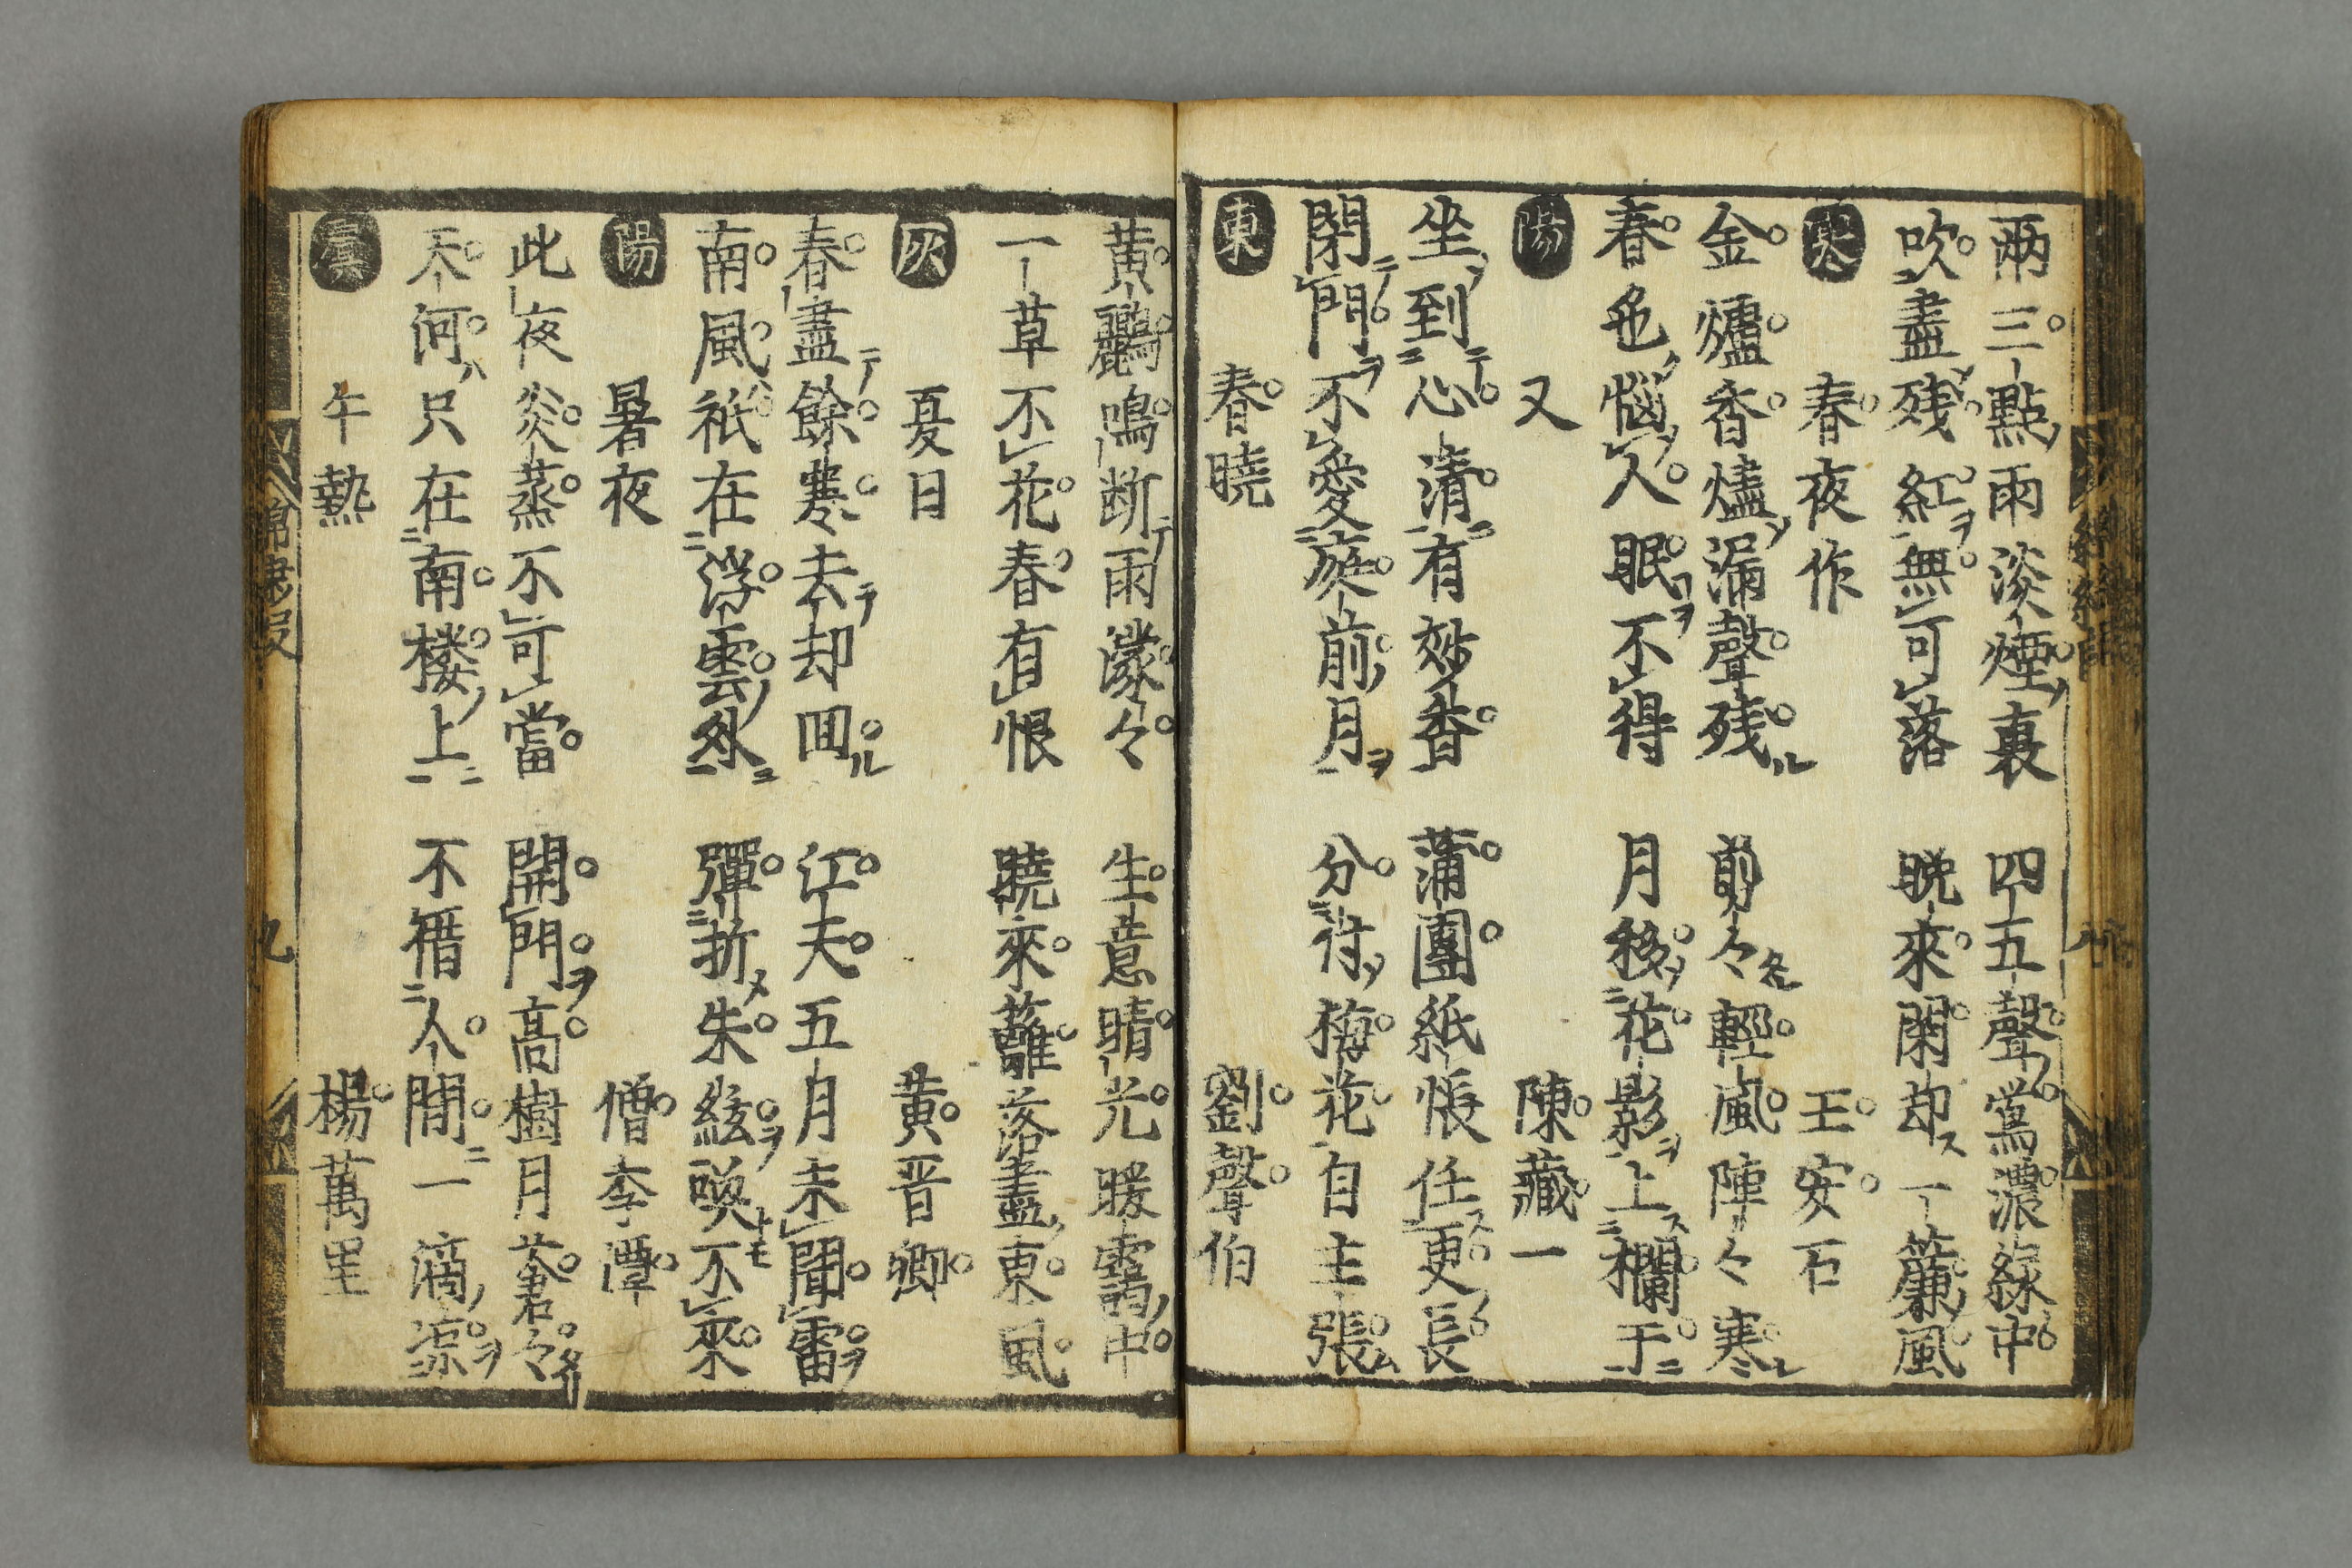 兩三點雨淡煙裏　四五聲鶯濃綠中
吹盡残紅無可落　晩來閑却一簾風
寒　春夜作　王安石
金爐香燼漏聲残　剪々輕風陣々寒
春色惱人眠不得　月移花影上欄干
陽　又　陳藏一
坐到心清有妙香　蒲團紙帳任更長
閉門不愛庭前月　分付梅花自主張
東　春曉　劉聲伯
黄鸝鳴断雨濛々　生意晴光暖靄中
一草不花春有恨　曉來蘺落盡東風
灰　夏日　黄晋卿
春盡餘寒去却回　江夫五月未聞雷
南風祇在浮雲外　彈折朱絃喚不來
陽　暑夜　僧李潭
此夜炎蒸不可當　開門高樹月蒼々
天河只在南楼上　不借人間一滴凉
虞　午熱　楊萬里
九